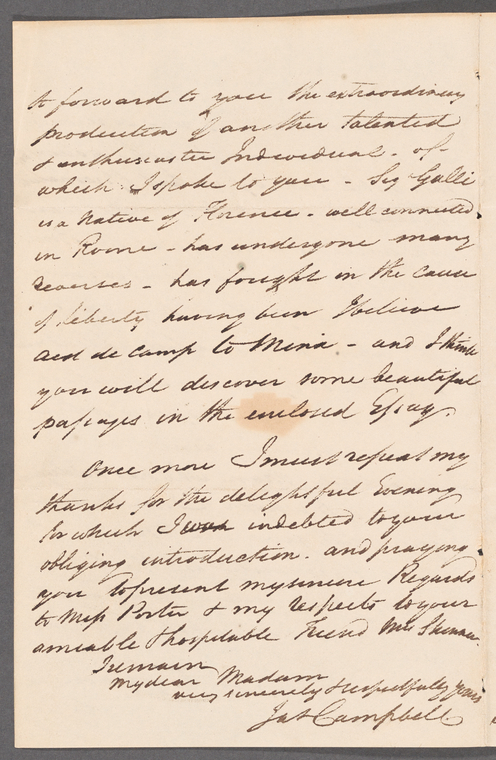 to forward to you the extraordinary
production of another talented
& enthusiastic Individual - of
which I spoke to you - Sig Galli
is a Native of Florence - well connected
in Rome - has undergone many
reverses - has fought in the cause
of liberty having been I believe
aid de camp to Mina - and I think
you will discover some beautiful
passages in the enclosed Essay.
Once more I must repeat my
thanks for the delightful Evening
for which I was indebted to your
obliging introduction. and praying
you to present my sincere Regards
to Miss Porter & my respects to your
amiable & hospitable Friend Mrs Skinner.
I remain
My dear Madam
very sincerely & respectfully yours
Jas Campbell